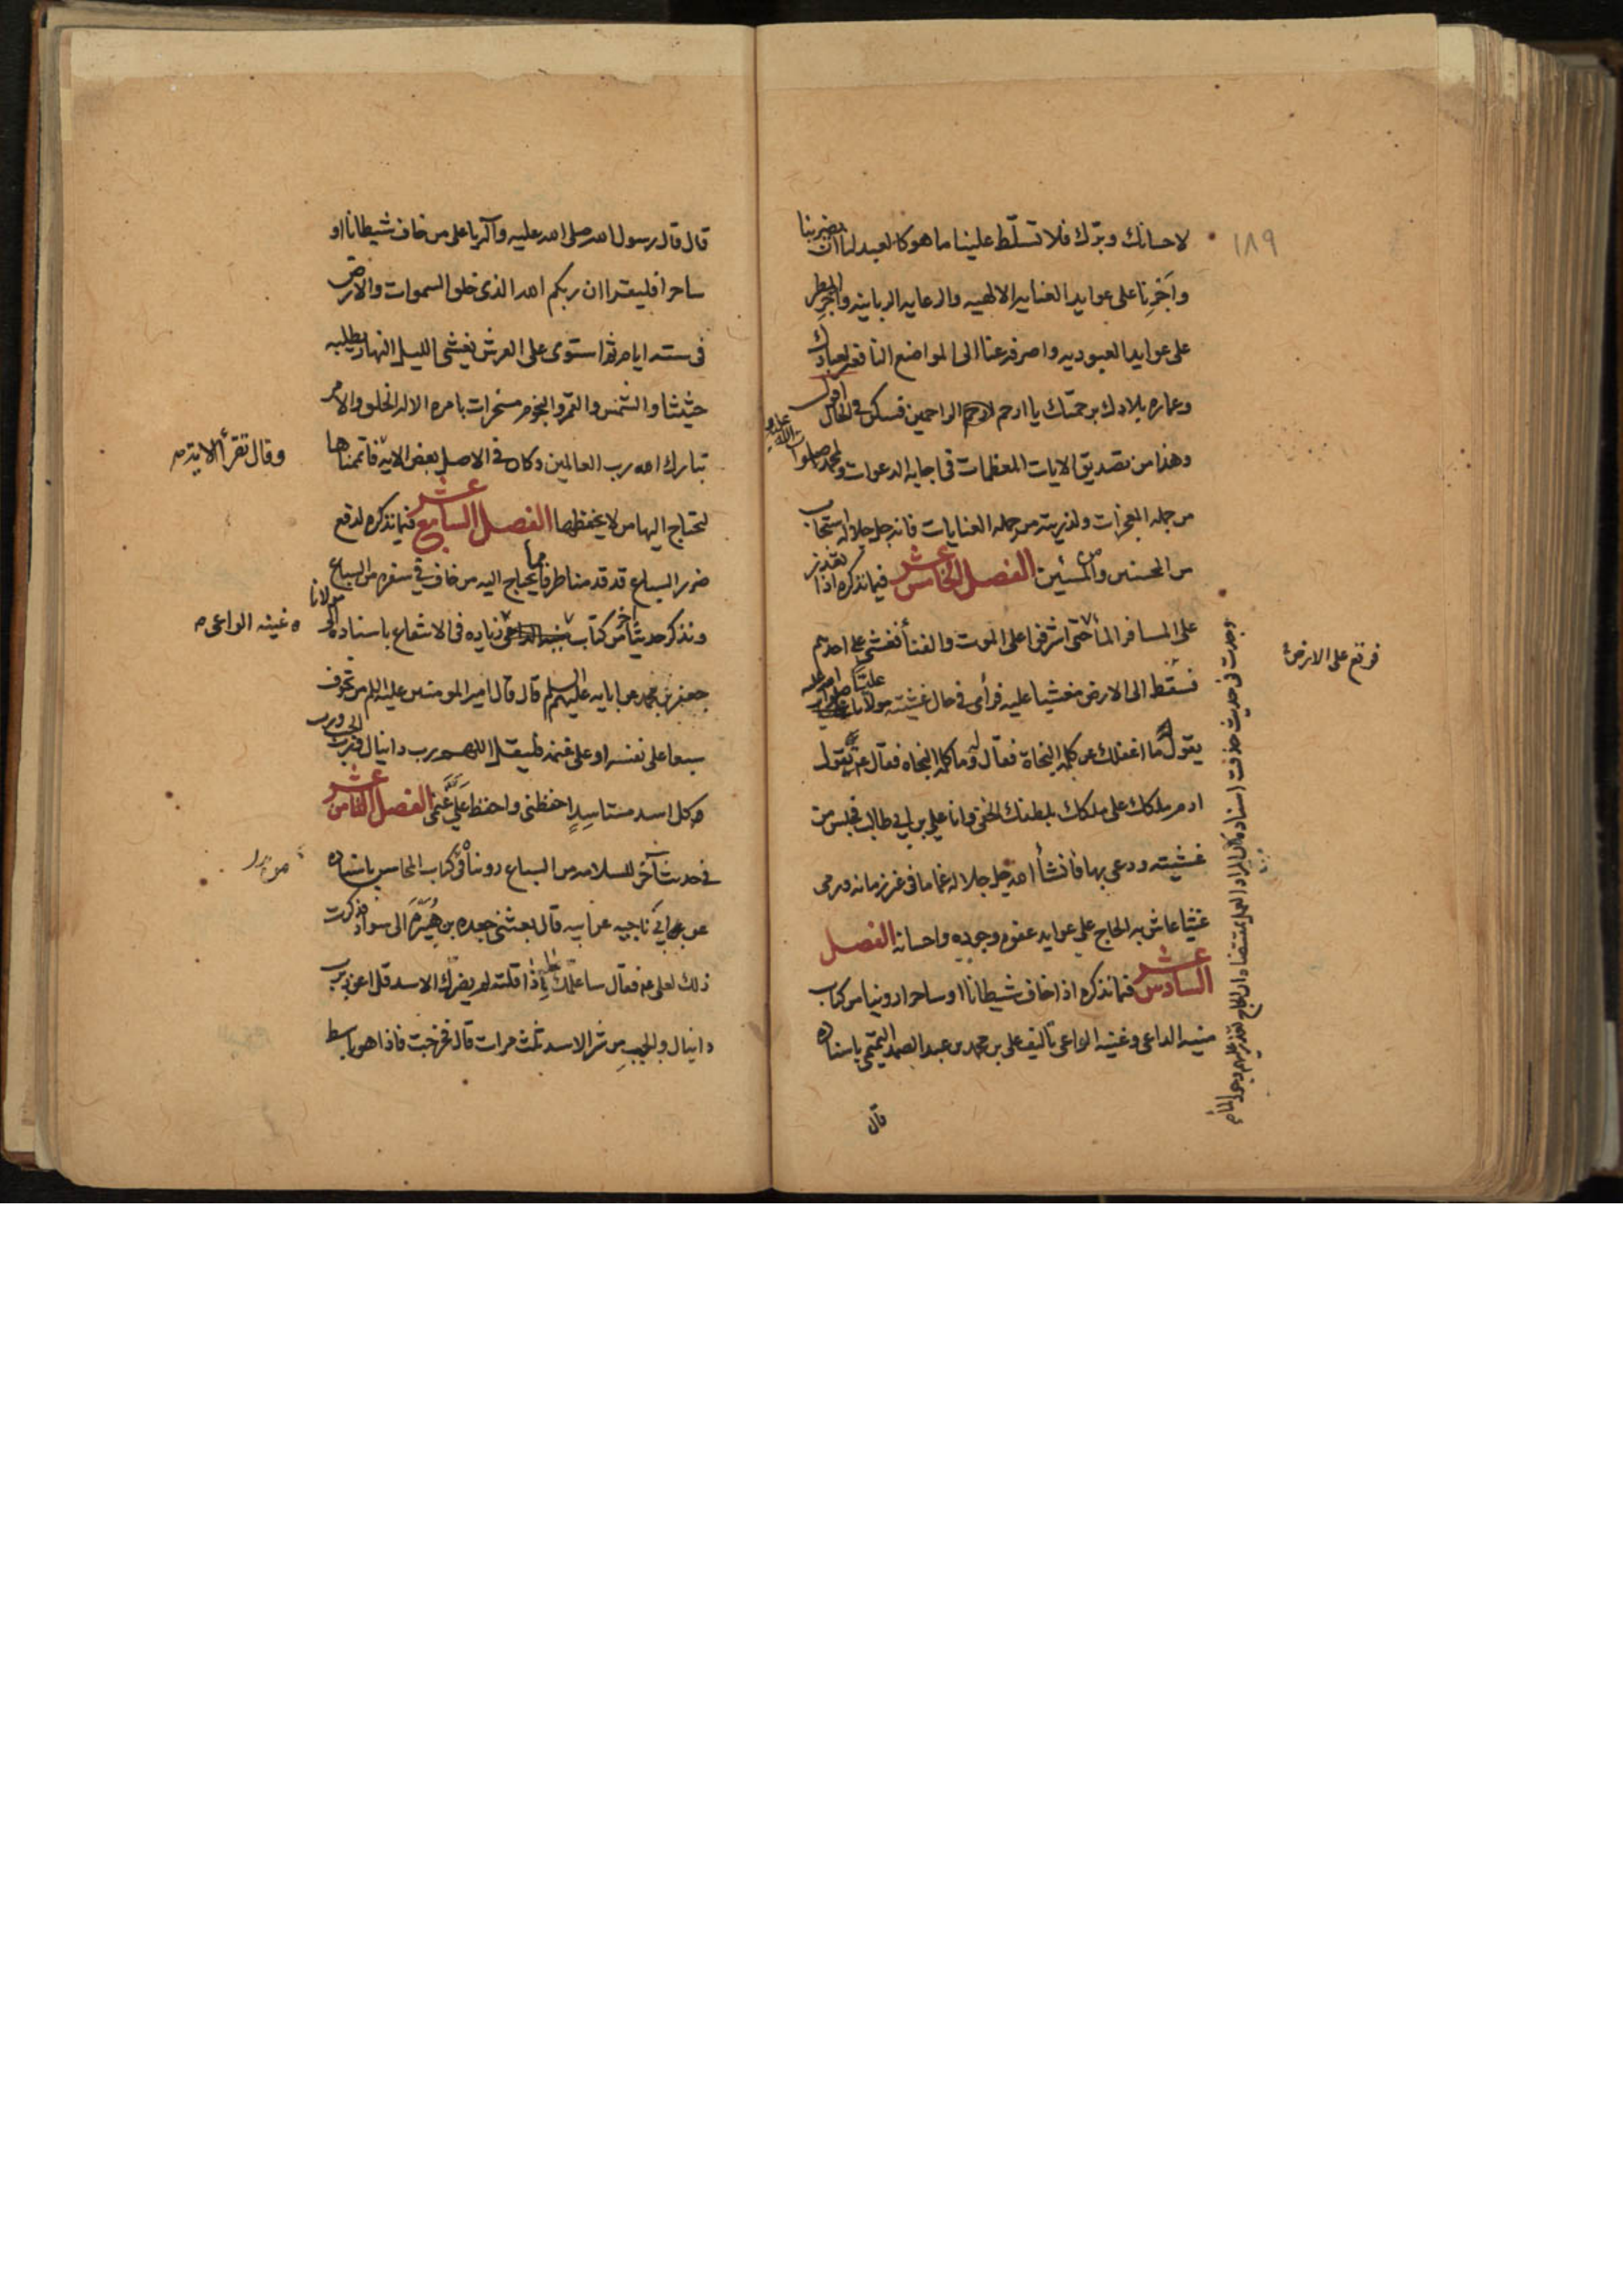 ١٨٩
لاحسانك وبرّك فلا تسلّط علينا ما هو كالعبد لنا ان يضربنا
وآخرنا على عوايد العنايه الالهيه والرعايه الربانيه واجر المطر
على عوايد العبوديه واصرفه عنا الى المواضع النافعه لعبادك
وعماره بلادك برحمتك يا ارحم الراحمين فسكن في الحال اقول
وهذا من تصديق الايات المعظمات في اجابه الدعوات ولمحمد صلوات الله عليه
من جمله المعجزات ولذريته من جمله العنايات فانه جل جلاله استجاب
من المحسنين ومن المسيئين الفصل الخامس عشر فيما نذكره اذا تعذر
على المسافر الماء حتى اشرفوا على الموت والفنا فغشي على احدهم
فسقط الى الارض مغشيا عليه فرأى في حال غشيته مولانا عليّا صلوات الله عليه
يقول ما اغفلك عن كلمه النجاه فقال له وما كلمه النجاه فقال تقول
ادم ملكك على ملكك بلطفك الخفي وانا علي بن ابي طالب فجلس من
غشيته ودعى بها فانشأ الله جل جلاله غماما في غير زمانه ورمى
غيثا عاش به الحاج على عوايد عفوه وجوده واحسانه الفصل
السادس عشر فيما نذكره اذا خاف شيطانا او ساحرا روينا من كتاب
منيه الداعي وغنيه الواعي تأليف علي بن محمد بن عبد الصمد التميمي باسناده
قال
فوقع على الارض
وجدت في حديث حذفت اسناده
قال قال رسول الله صلى الله عليه وآله يا علي من خاف شيطانا او
ساحرا فليقرا ان ربكم الله الذي خلق السموات والارض
في سته ايام ثم استوى على العرش يغشي الليل النهار يطلبه
حثيثا والشمس والقمر والنجوم مسخرات بامره الا له الخلق والامر
تبارك الله رب العالمين وكان في الاصل بعض الايه فاتممناها
وقال تقرأ الايه
لتحتاج اليها من لا يحفظها الفصل السابع عشر فيما نذكره لدفع
ضرر السباع قد قدمنا طرفا مما يحتاج اليه من خاف في سفره من السباع
ونذكر حديثا آخر من كتاب زياده في الانتفاع باسناده الى مولانا
غنيه الواعي
جعفر بن محمد عن ابايه عليهم السلم قال قال امير المومنين عليه السلم من تخوف
سبعا على نفسه او على غنمه فليقل اللهم رب دانيال ورب الجب ورب
كل اسد مستاسد احفظني واحفظ عليّ غنمي الفصل الثامن عشر
في حديث آخر للسلامه من السباع رويناه في كتاب المحاسن باسناده
عن ابي ناجيه عن ابيه قال بعثني جعده بن هبيره الى سورا فذكرت
ذلك لعلي فقال ساعلمك ما اذا قلته لم يضرك الاسد قل اعوذ برب
دانيال والجب من شر الاسد ثلث مرات قال فخرجت فاذا هو باسط